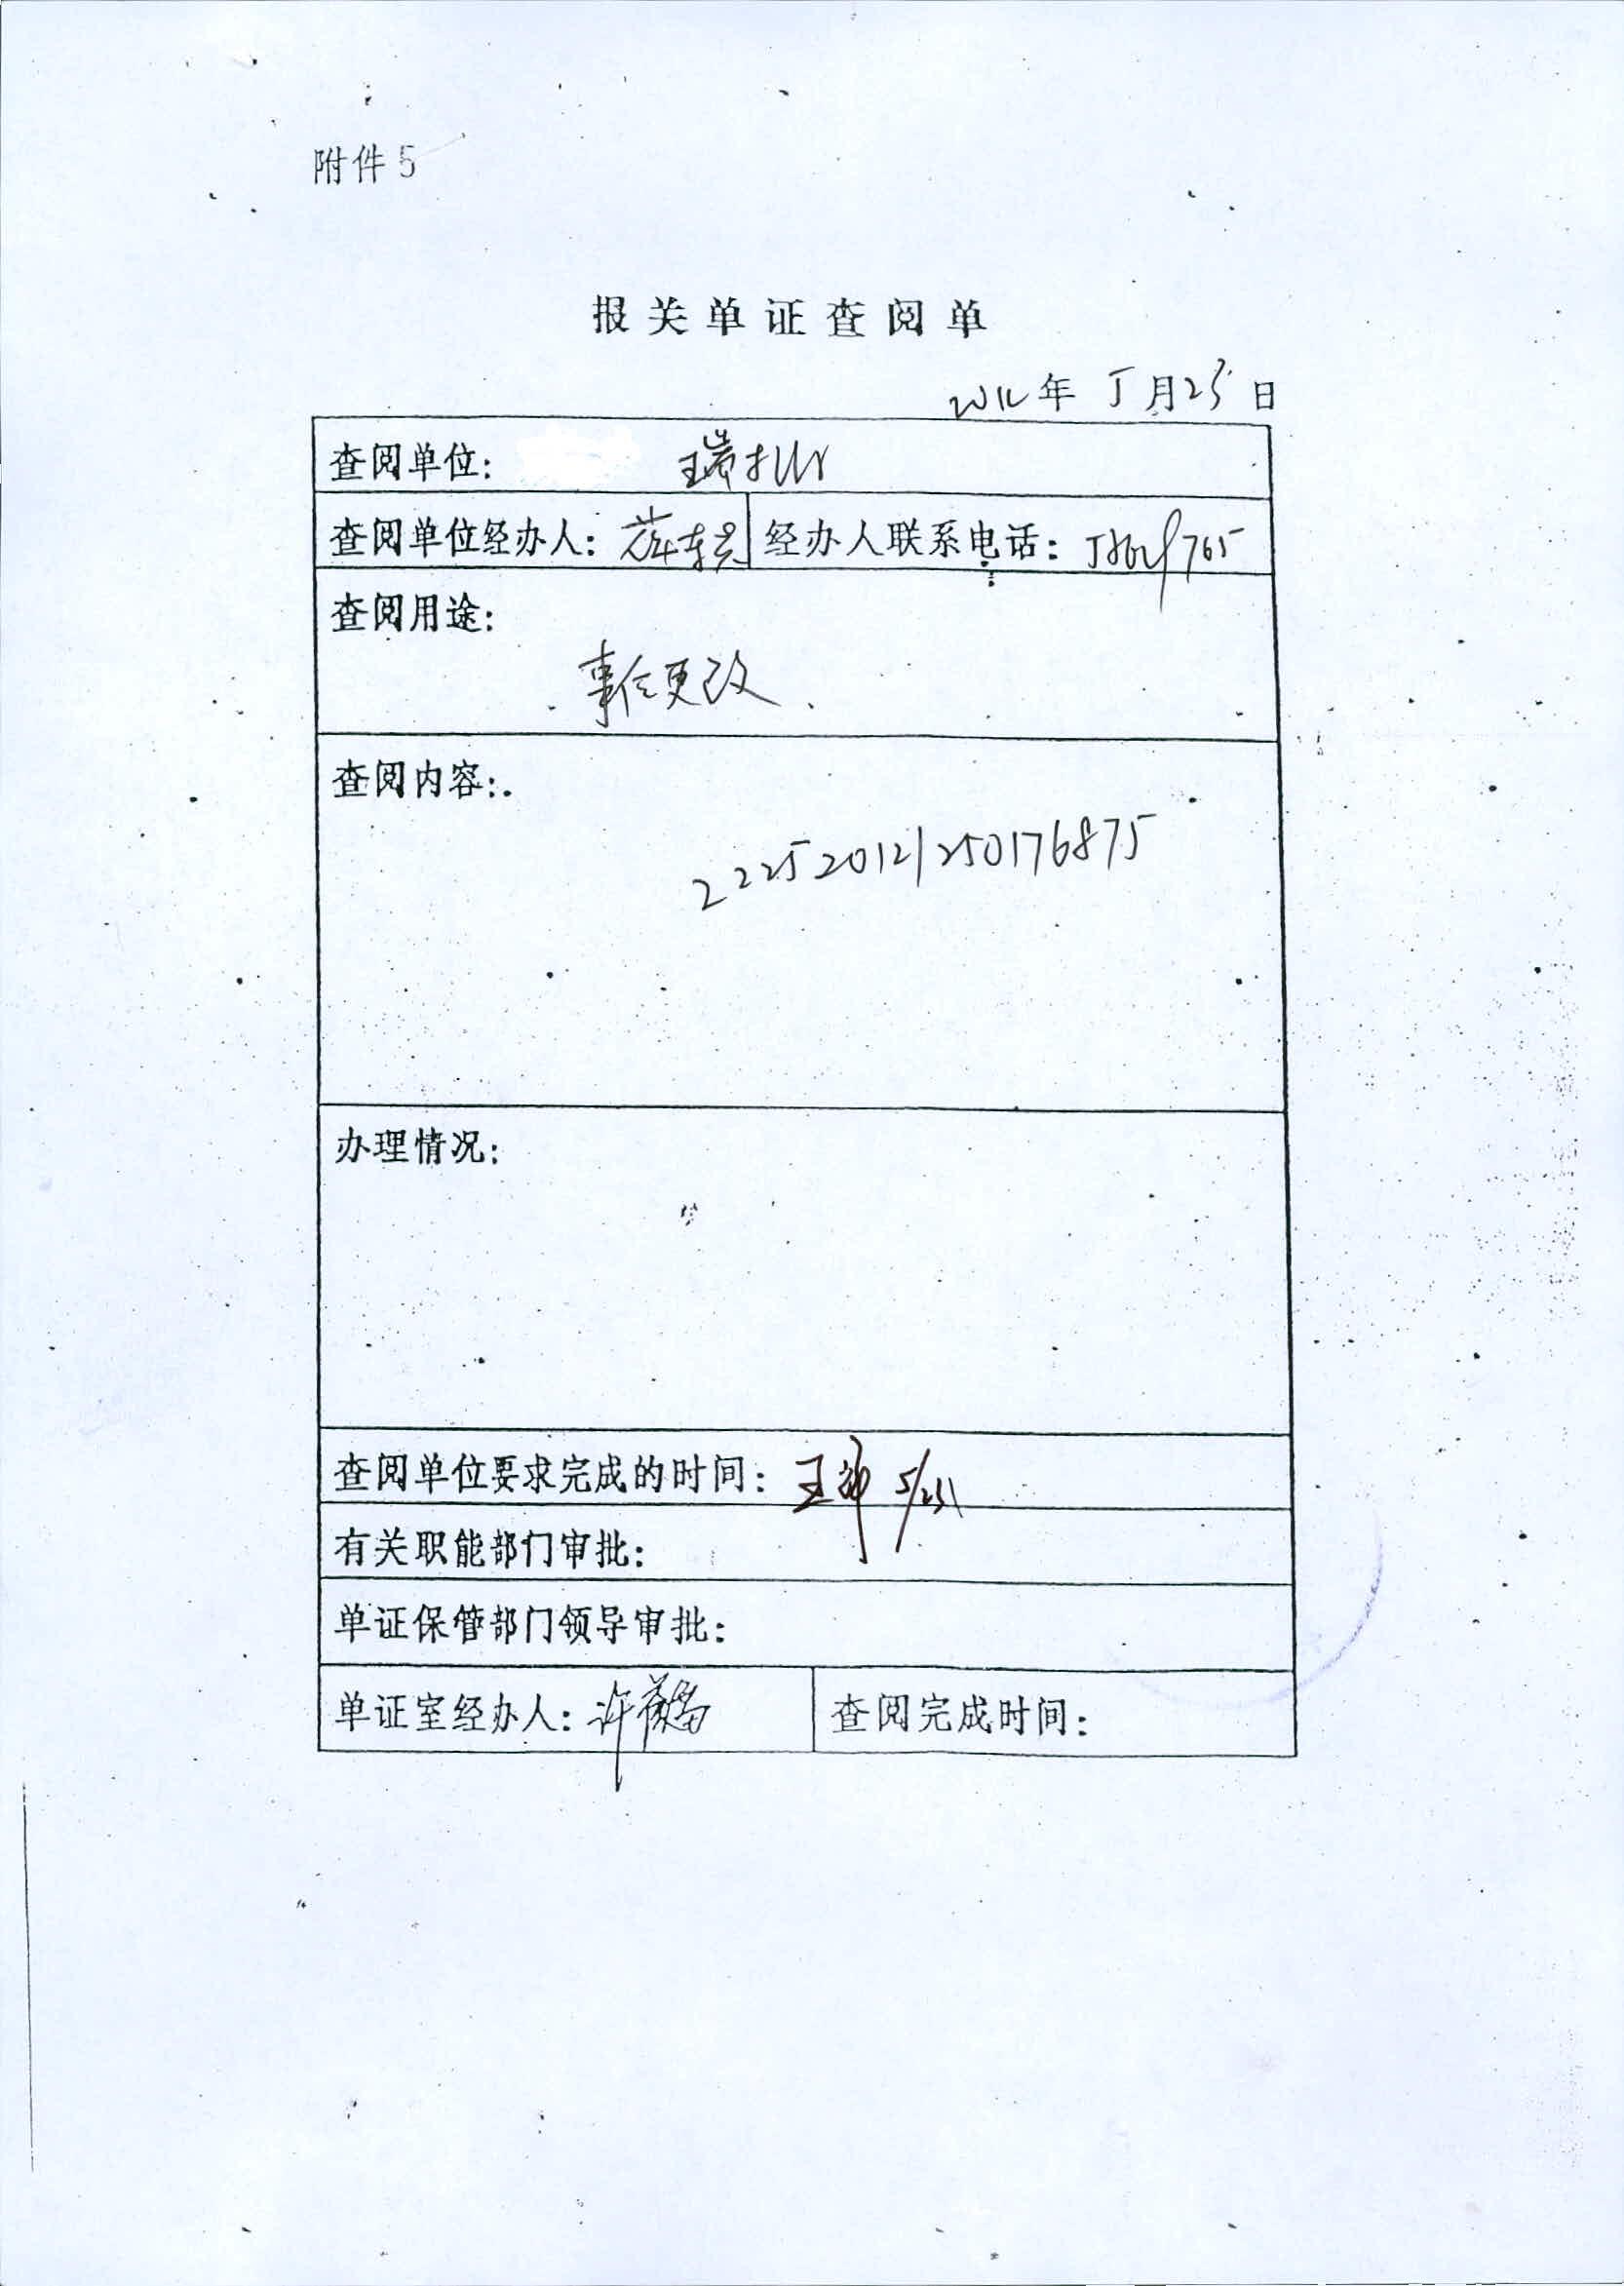 附件5
报关单证查阅单
2012年5月25日
查阅单位：
查阅单位经办人： 经办人联系电话：
查阅用途：
事后更改
查阅内容：
222520121250176875
办理情况：
查阅单位要求完成的时间： 5/25
有关职能部门审批：
单证保管部门领导审批：
单证室经办人： 查阅完成时间：